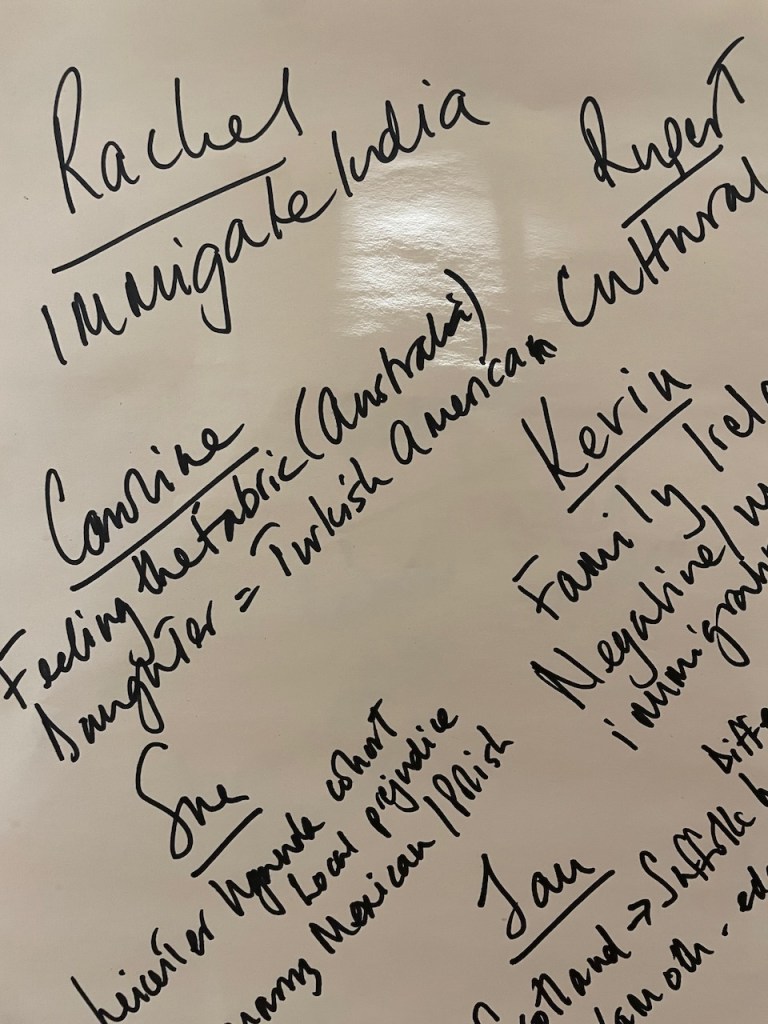 Rachel
Immigate India
Rupert
Cultural
Caroline
Feeling the Fabric (Australia)
Daughter = Turkish American
Kevin
Family
Negative
Sue
Leicester Uganda cohort
Local prejudice
Mexican
Ian
Scotland → Suffolk